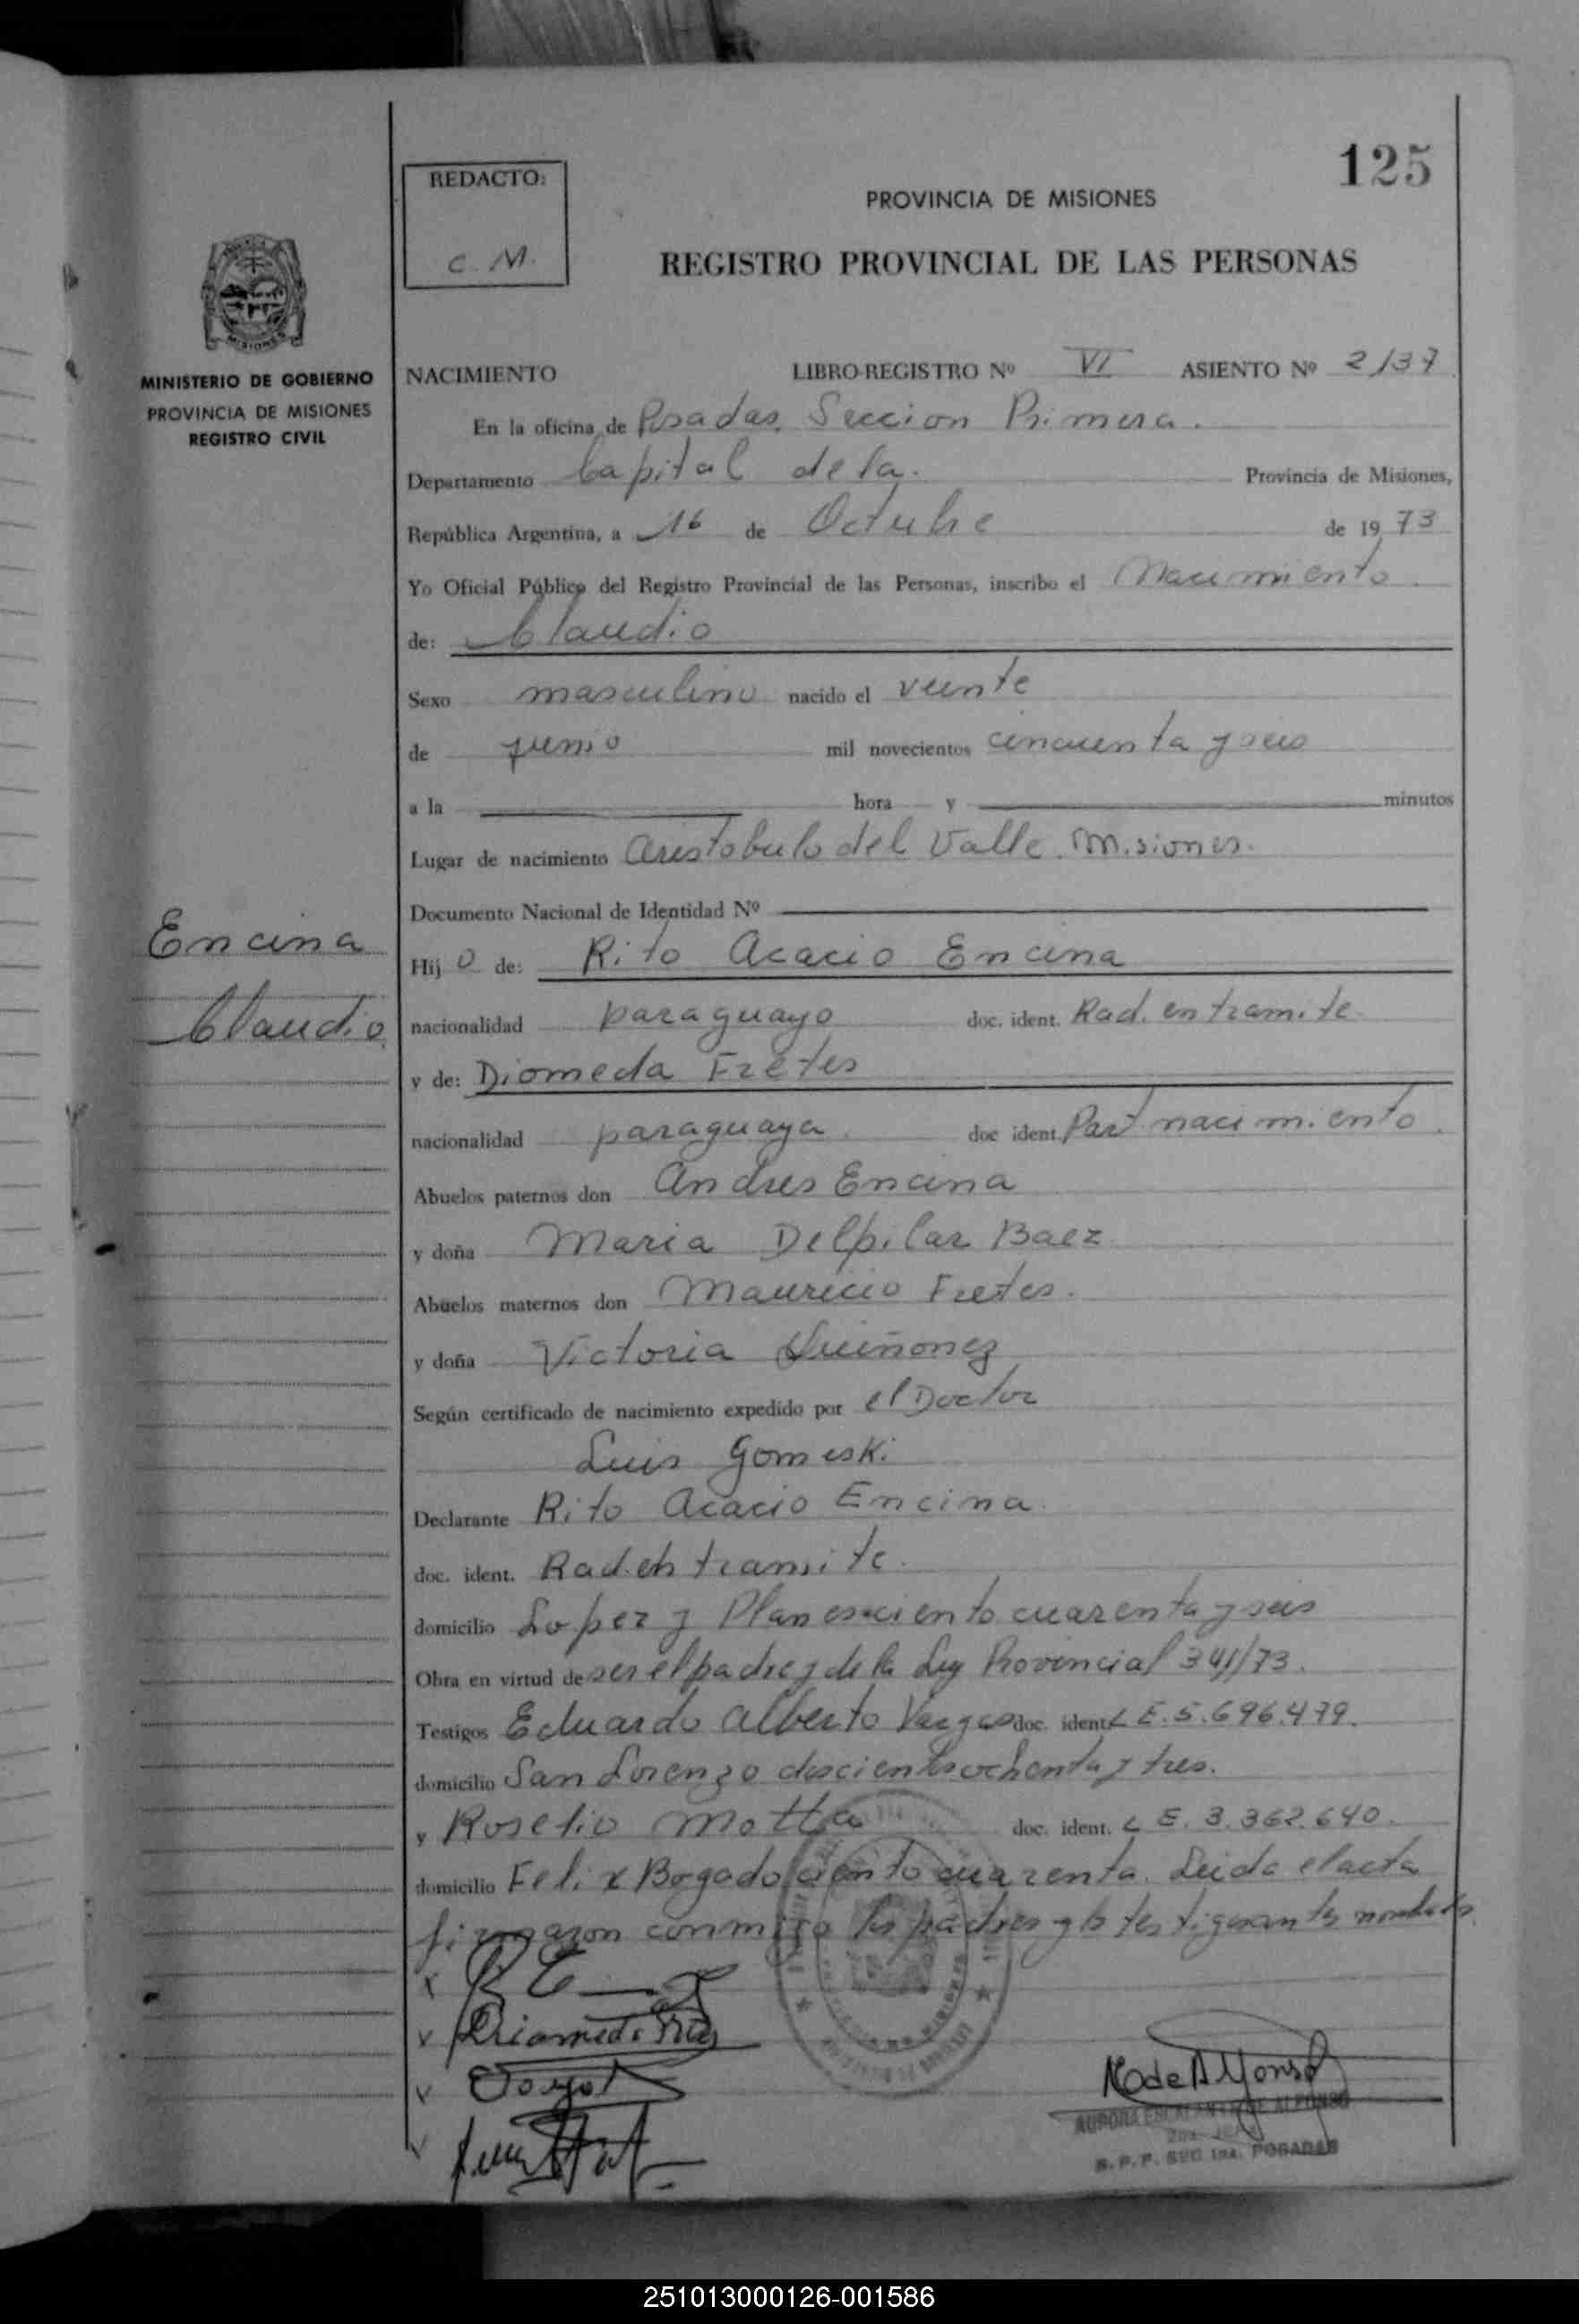 125
REDACTO:
C. M.
PROVINCIA DE MISIONES
REGISTRO PROVINCIAL DE LAS PERSONAS
MISIONES
MINISTERIO DE GOBIERNO
PROVINCIA DE MISIONES
REGISTRO CIVIL
NACIMIENTO LIBRO-REGISTRO Nº VI ASIENTO Nº 2137
En la oficina de Posadas, Seccion Primera.
Departamento Capital de la. Provincia de Misiones,
República Argentina, a 16 de Octubre de 1973
Yo Oficial Público del Registro Provincial de las Personas, inscribo el Nacimiento
de: Claudio
Sexo masculino nacido el veinte
de junio mil novecientos cincuenta y seis
a la hora y minutos
Lugar de nacimiento Aristobulo del Valle. Misiones.
Documento Nacional de Identidad Nº
Encina
Claudio
Hijo de: Rito Acacio Encina
nacionalidad paraguayo doc. ident. Rad. en tramite
y de: Diomeda Fretes
nacionalidad paraguaya doc ident. Part nacimiento.
Abuelos paternos don Andres Encina
y doña Maria Delpilar Baez
Abuelos maternos don Mauricio Fretes.
y doña Victoria Quiñonez
Según certificado de nacimiento expedido por el Doctor
Luis Gomeski
Declarante Rito Acacio Encina.
doc. ident. Rad. en tramite.
domicilio Lopez y Planes ciento cuarenta y seis
Obra en virtud de ser el padre y de la Ley Provincial 341/73.
Testigos Eduardo Alberto Vargas doc. ident. L E. 5.696.479.
domicilio San Lorenzo doscientos ochenta y tres.
y Roselio Motta doc. ident. L E. 3.362.640.
domicilio Felix Bogado ciento cuarenta. Leida el acta
firmaron conmigo los padres y los testigos antes nombrados.
x
x Diomeda Fretes
x
x
AURORA ESCALANTE DE ALFONSO
R.P.P. SEC 1ra. POSADAS
251013000126-001586